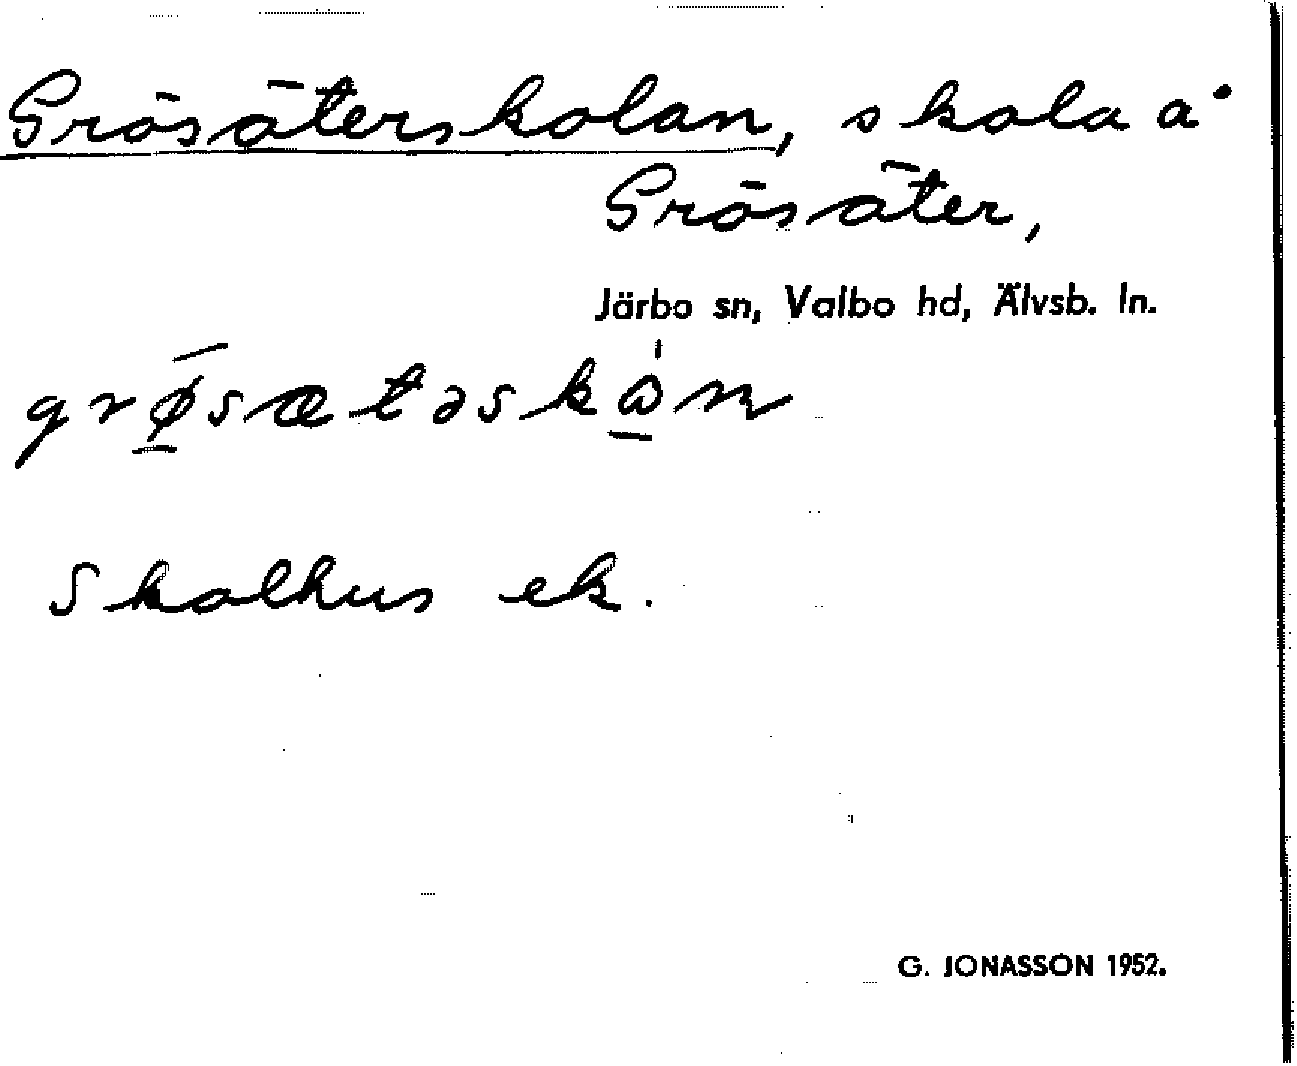 Grösäterskolan, skola å
Grösäter,
Järbo sn, Valbo hd, Älvsb. ln.
grø̱sætəskɷ̱n
Skolhus ek.
G. JONASSON 1952.